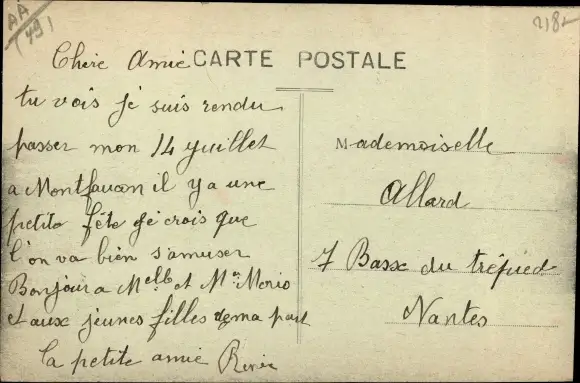 AA
(49)
218-
CARTE POSTALE
Chere Amie
tu vois je suis rendu
passer mon 14 juillet
a Montfaucon il y a une
petite fête je crois que
l'on va bien s'amuser
Bonjour a Melle et Mr
et aux jeunes filles de ma part
ta petite amie
Mademoiselle
Allard
7 Basse du trépied
Nantes